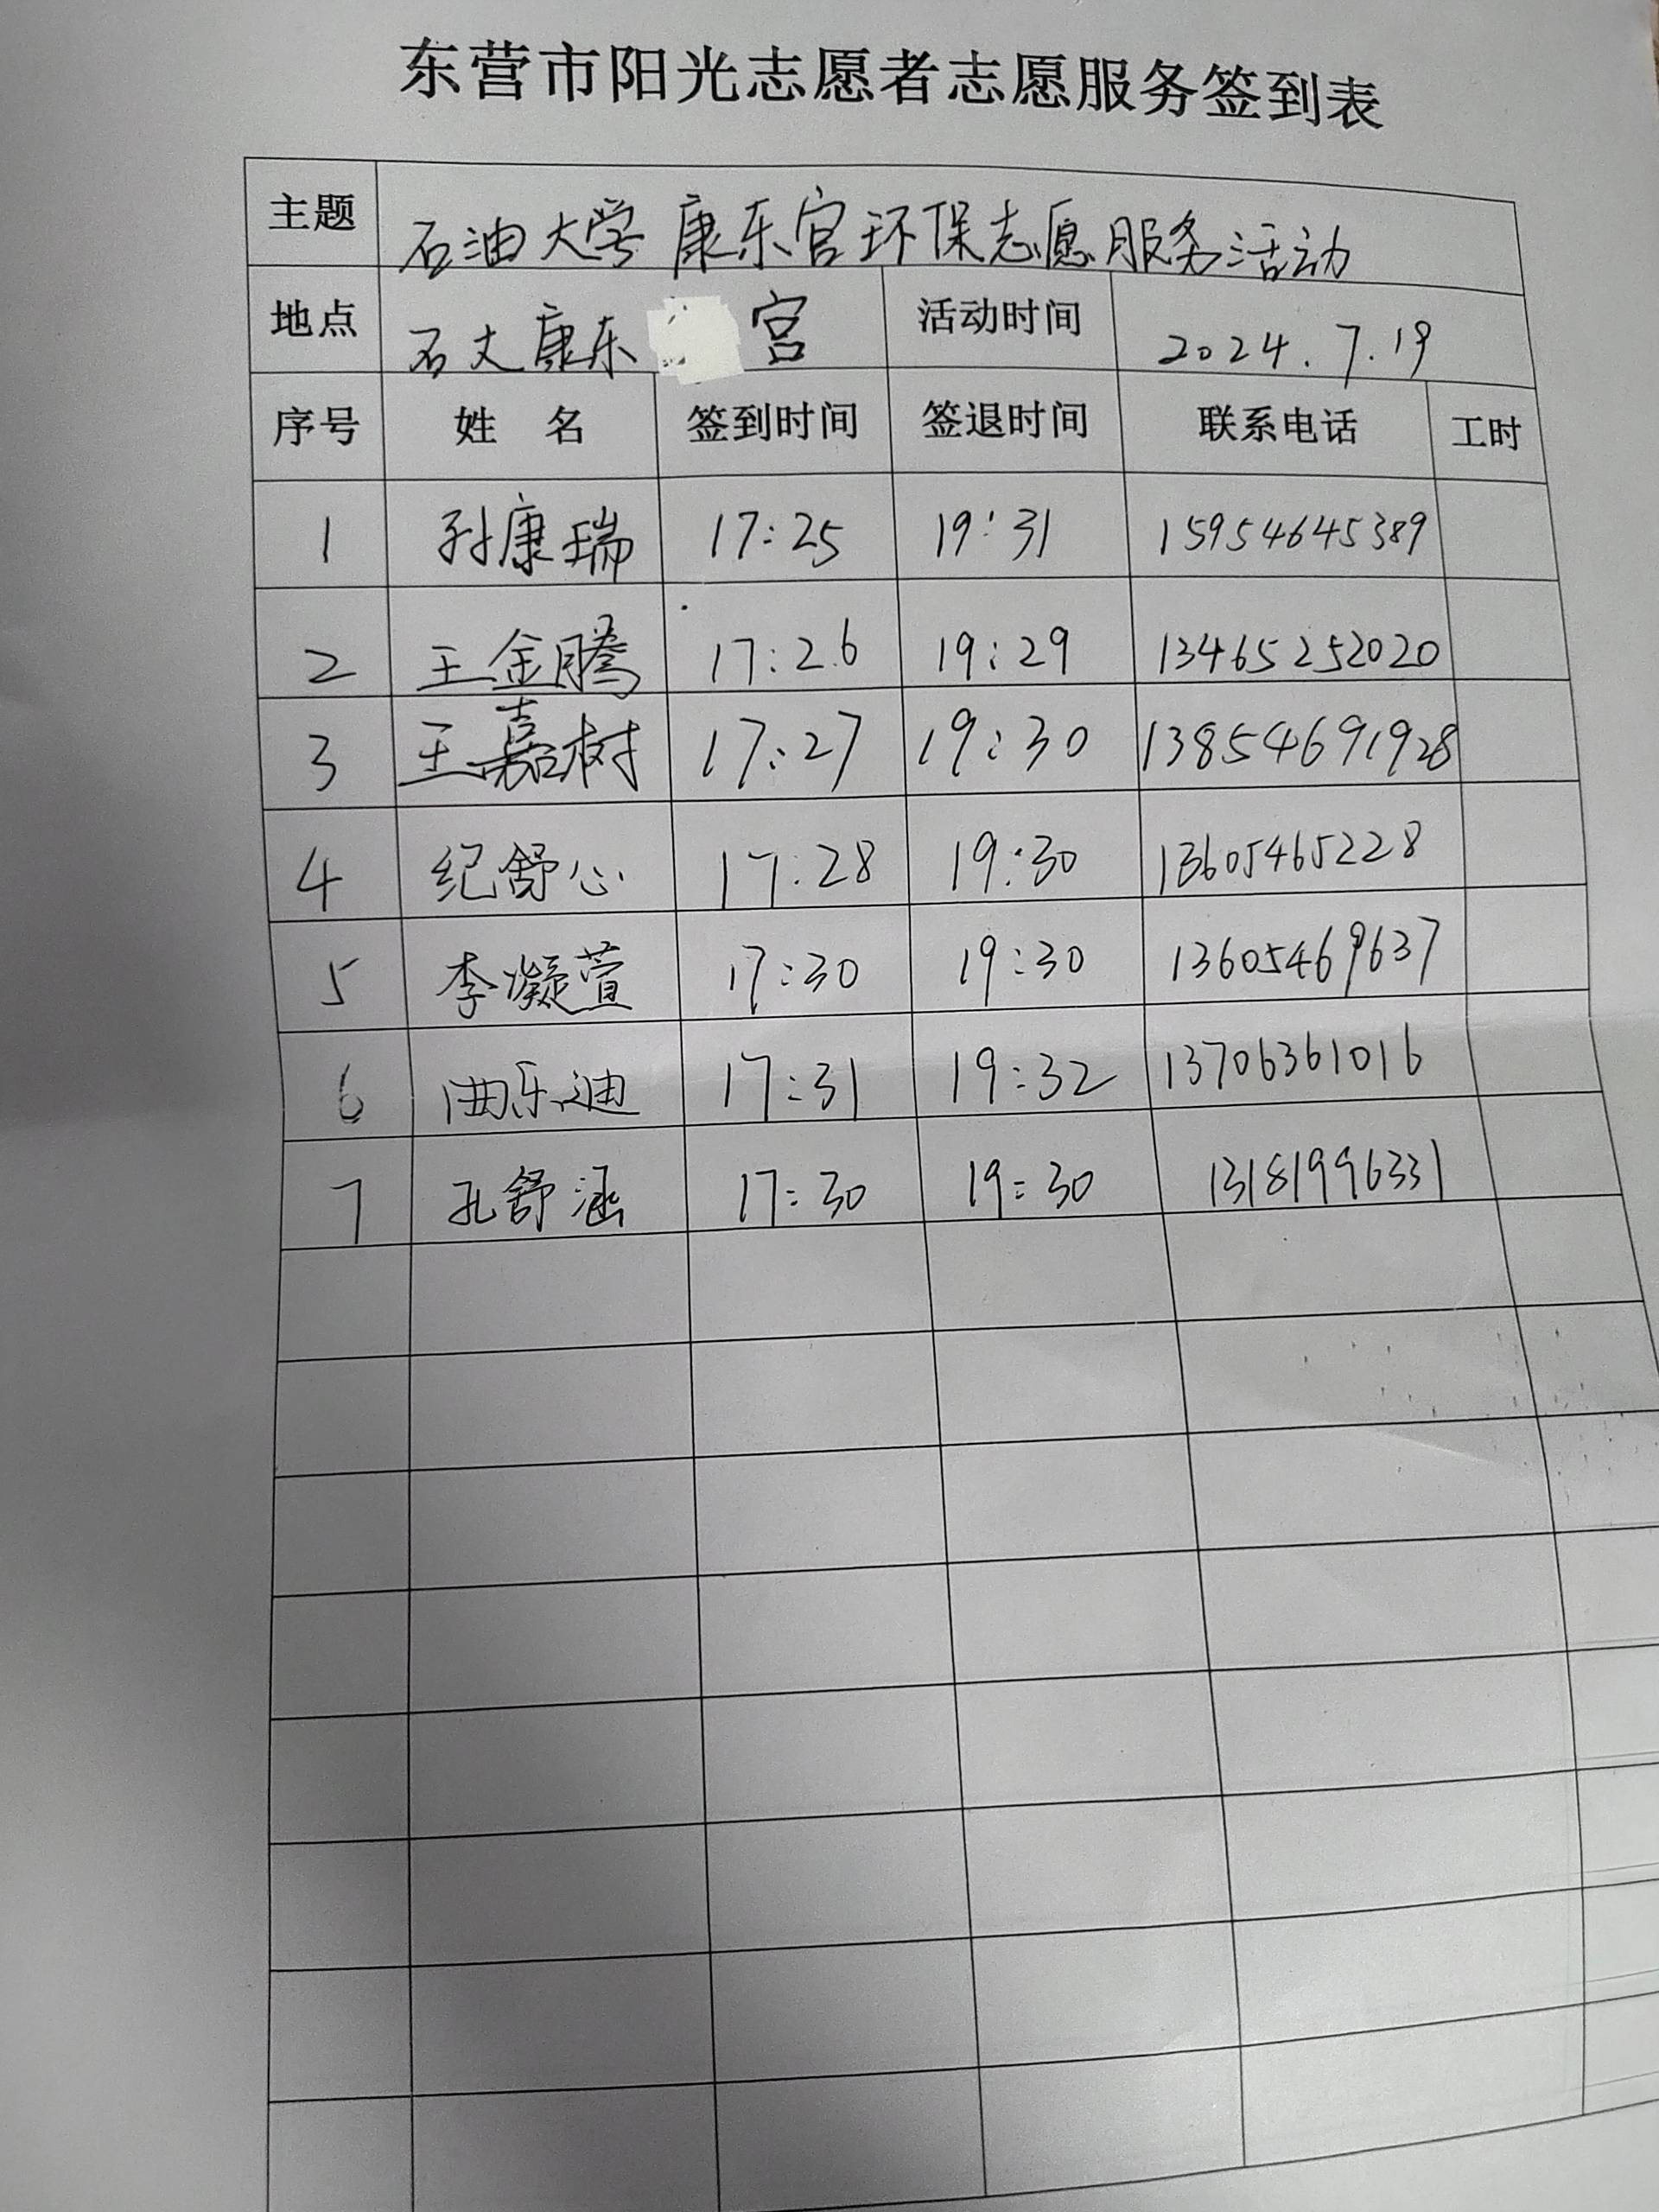 东营市阳光志愿者志愿服务签到表
主题 石油大学康东宫环保志愿服务活动
地点 石大康东 宫 活动时间 2024.7.19
序号 姓 名 签到时间 签退时间 联系电话 工时
1 孙康瑞 17:25 19:31 15954645389
2 王金腾 17:26 19:29 13465252020
3 王嘉树 17:27 19:30 13854691928
4 纪舒心 17:28 19:30 13605465228
5 李凝萱 17:30 19:30 13605469637
6 曲乐迪 17:31 19:32 13706361016
7 孔舒涵 17:30 19:30 13181996331